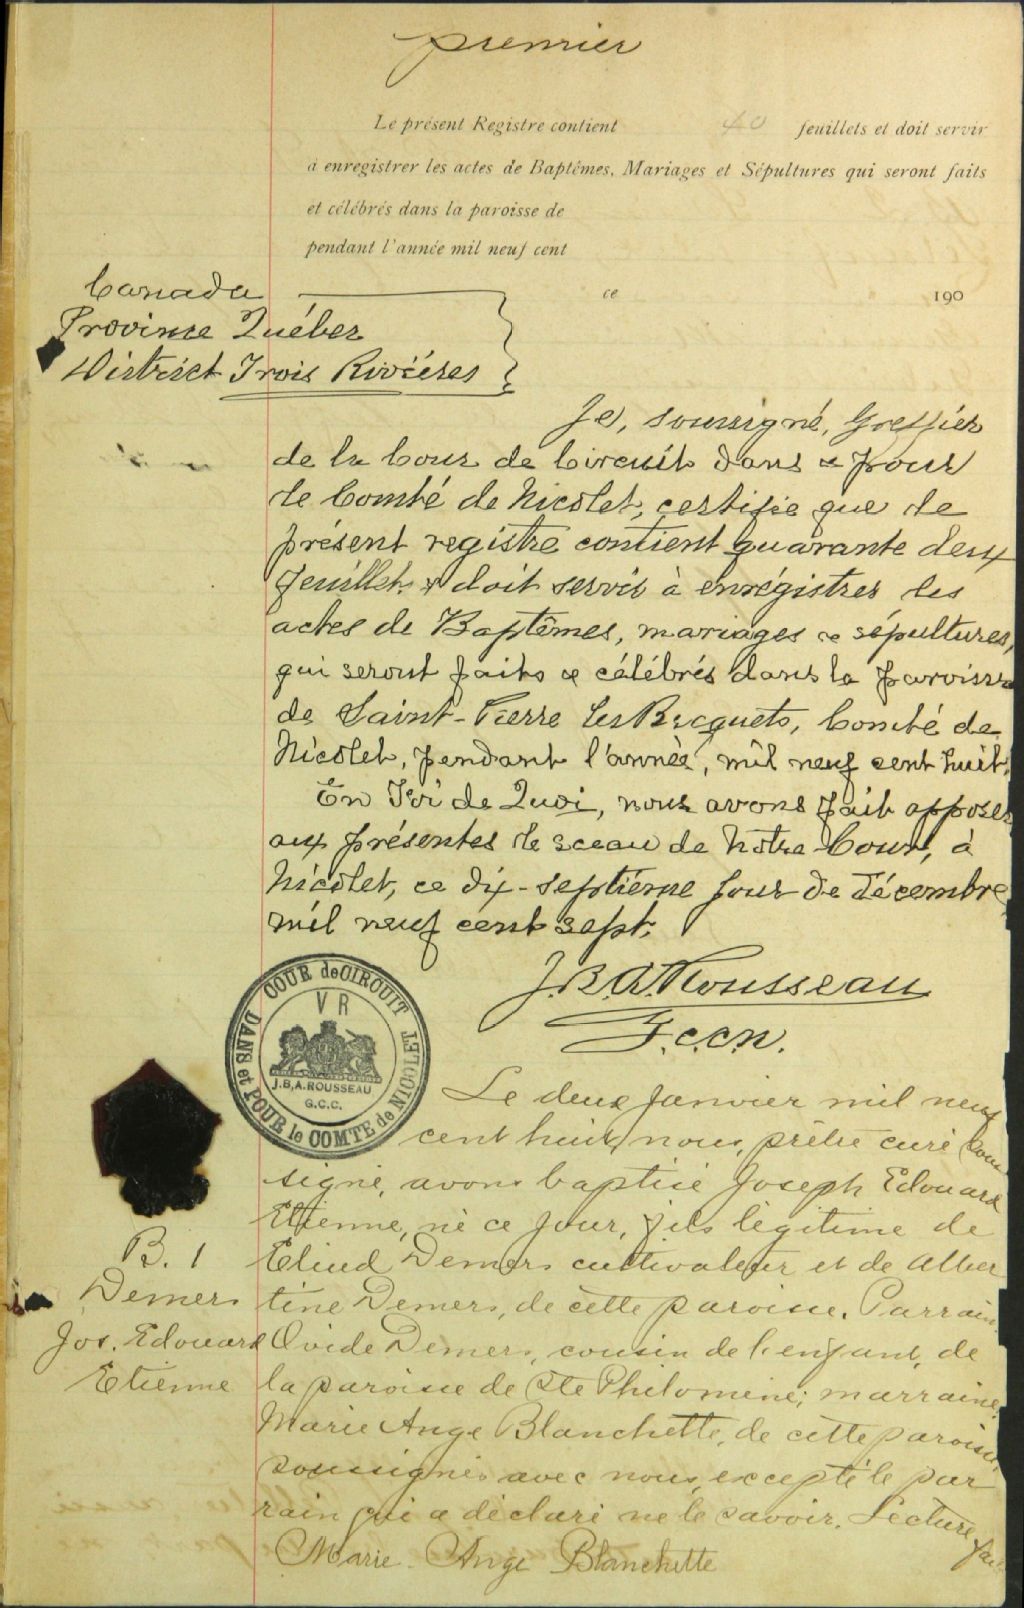 premier
Le présent Registre contient 40 feuillets et doit servir
à enregistrer les actes de Baptêmes, Mariages et Sépultures qui seront faits
et célébrés dans la paroisse de
pendant l'année mil neuf cent
ce 190
Canada
Province Québec
District Trois Rivières
Je, soussigné, Greffier
de la Cour de Circuit dans & pour
le Comté de Nicolet, certifie que le
présent registre contient quarante deux
feuillets & doit servir à enrégistrer les
actes de Baptêmes, mariages & sépultures,
qui seront faits & célébrés dans la paroisse
de Saint-Pierre les Becquets, Comté de
Nicolet, pendant l'année, mil neuf cent huit.
En Foi de Quoi, nous avons fait apposer
aux présentes le sceau de Notre Cour, à
Nicolet, ce dix-septième jour de Décembre
mil neuf cent sept.
J.B.A. Rousseau
G.C.C.N.
COUR de CIRCUIT
DANS et POUR le COMTE de NICOLET
V R
J.B.A. ROUSSEAU
G.C.C.
Le deux Janvier mil neuf
cent huit, nous, prêtre curé sous
signé, avons baptisé Joseph Edouard
Etienne, né ce jour, fils légitime de
B. 1
Demers
Jos. Edouard
Etienne
Eliud Demers cultivateur et de Alber
tine Demers, de cette paroisse. Parrain
Ovide Demers, cousin de l'enfant, de
la paroisse de Ste Philomène; marraine,
Marie Ange Blanchette, de cette paroisse,
soussignés avec nous, excepté le par
rain qui a déclaré ne le savoir. Lecture fai
Marie-Ange Blanchette